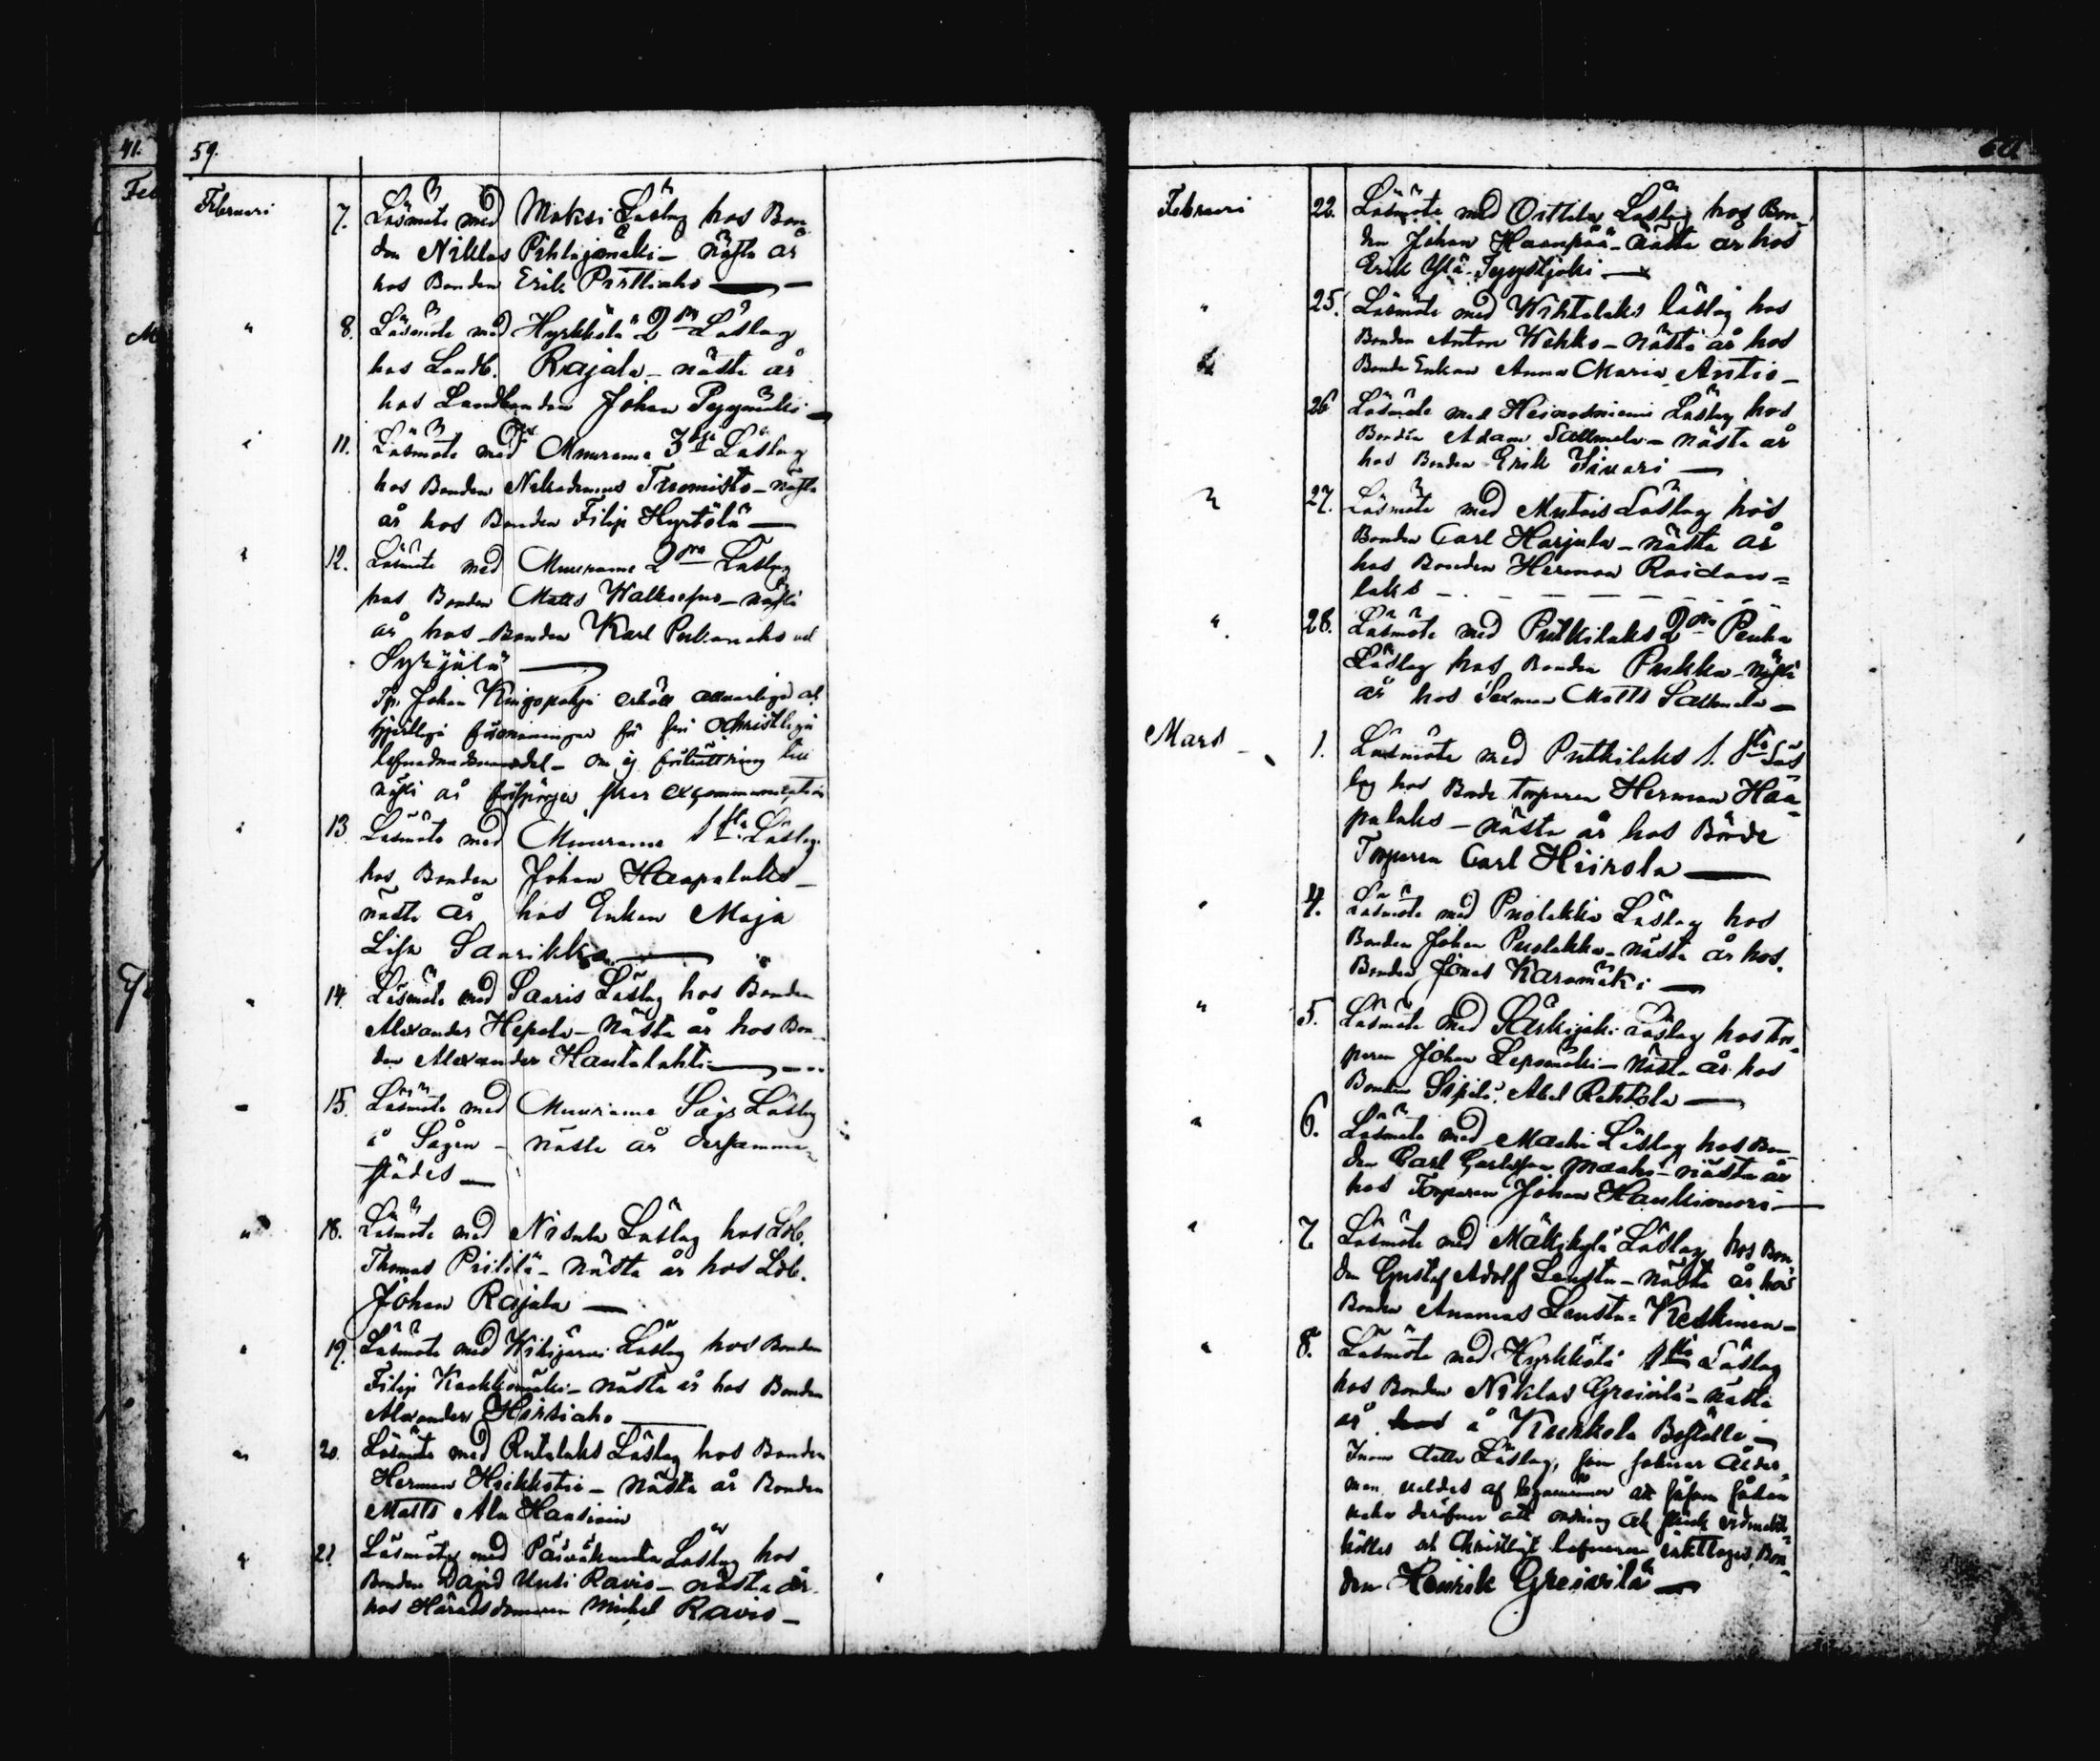 41.
Feb
M
59.
Februari 7. Läsmöte med Moksi Läslag hos Bon-
den Niklas Pihlajamäki – nästa år
hos Bonden Erik Pirttiaho —
" 8. Läsmöte med Hyrkkölä 2dra Läslag
hos Landb. Rajala – nästa år
hos Landbonden Johan Pyymäki –
" 11. Läsmöte med Muurame 3dje Läslag
hos Bonden Nikodemus Tuomisto – nästa
år hos Bonden Filip Hyrtölä —
" 12. Läsmöte med Muurame 2dra Läslag
hos Bonden Matts – nästa
år hos Bonden Karl
Sysijälä —
Tp. Johan erhöll allvarliga och
hjertliga förmaningar för sin ochristliga
lefnadsvandel – om ej förbättring till
nästa år förspörjes sker excommunication
" 13. Läsmöte med Muurame 1sta Läslag
hos Bonden Johan Haapalaks –
nästa år hos Enkan Maja
Lisa Saarikko —
" 14. Läsmöte med Saaris Läslag hos Bonden
Alexander Hepola – nästa år hos Bon-
den Alexander Hautalahti —
" 15. Läsmöte med Muurame Sågs Läslag
å Sågen – nästa år dersamma-
städes —
" 18. Läsmöte med Nisula Läslag hos Ldb.
Thomas Priililä – nästa år hos Ldb.
Johan Rajala —
" 19. Läsmöte med Wihijärvi Läslag hos Bonden
Filip Kaakkomäki – nästa år hos Bonden
Alexander Hirsiaho
" 20. Läsmöte med Rutalaks Läslag hos Bonden
Herman – nästa år Bonden
Matts Ala
" 21. Läsmöte med Päiväkunta Läslag hos
Bonden David Uusi Ravio – nästa år
hos Häradsdomaren Michel Ravio –
60
Februari 22. Läsmöte med Oittila Läslag hos Bon-
den Johan Haanpää – nästa år hos
Erik Ylä-Tyystjoki —
" 25. Läsmöte med Wihtalaks läslag hos
Bonden Anton Wehko – nästa år hos
Bonde Enkan Anna Maria Antio –
26 Läsmöte med Heinosniemi Läslag hos
Bonden Adam Sallmela – nästa år
hos Bonden Erik Sivari —
" 27. Läsmöte med Mutois Läslag hos
Bonden Carl Harjula – nästa år
hos Bonden Herman Raidan=
laks – – – – – –
" 28. Läsmöte med Putkilaks 2dra
Läslag hos Bonden Pukka – nästa
år hos Sexman Matts Sallmela –
Mars – 1. Läsmöte med Putkilaks 1.sta Läs
lag hos Bonde torparen Herman Haa-
palaks – nästa år hos Bonde
Torparen Carl Hiirola —
" 4. Läsmöte med Puolakka Läslag hos
Bonden Johan Puolakka – nästa år hos
Bonden Jonas Karamäki —
" 5. Läsmöte med Särkijoki Läslag hos tor-
paren Johan Lepomäki – nästa år hos
Bonden Sipilä, Abel Rekkola —
" 6. Läsmöte med Maaki Läslag hos Bon-
den Carl Carlsson Maahi – nästa år
hos Torparen Johan Haukivuori —
" 7. Läsmöte med Mäkikylä Läslag hos Bon-
den Gustaf Adolf Sensta – nästa år hos
Bonden Ananias Sensta-Keskinen –
" 8. Läsmöte med Hyrkkölä 1sta Läslag
hos Bonden Niklas Greivilä – nästa
år hos å Kurkola Boställe –
Inom detta Läslag, som saknar Ålder-
man valdes af att såsom sådan
vaka deröfver att ordning och skick
hålles och Christligt lefverne iakttages, Bon-
den Henrik Greivilä —